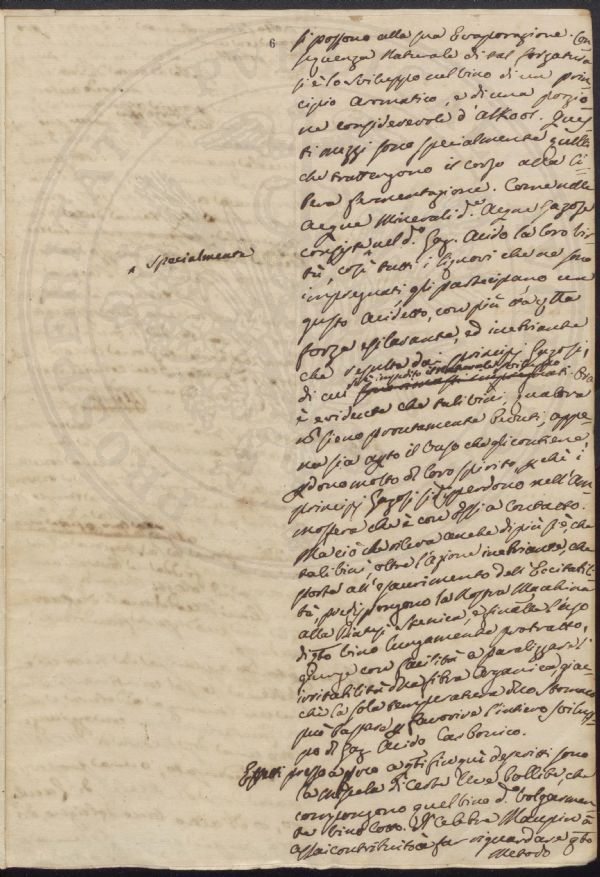 6
si possono alla sua Evaporazione. Con
seguenza naturale di tal
si è lo sviluppo nel vino di un prin
cipio aromatico, e di una porzio
ne considerevole d'alkool. Ques
ti mezzi sono specialmente quelli
che trattengono il corso alla li
bera fermentazione. Come nelle
Acque Minerali d.e Acque Gazose
consiste nel d.o Gaz Acido la loro vir
tù, così * tutti i liquori che ne sono
* specialmente
impregnati, gli partecipano un
gusto Acidetto, con più
forza esilarante, ed inebriante
che resulta dai principj Gazosi,
di cui
è evidente che tali vini, qualora
non sieno prontamente bevuti, appe
na sia apto il Vaso che gli contiene
pdono molto di loro spirito, pchè i
principj Gazosi si disperdono nell'At
mosfera che è con essi a contatto.
Ma ciò che rileva anche di più si è, che
tali vini, oltre l'azione inebriante, che
porta all'esaurimento dell'Eccitabili
tà, predispongono la Macchina
alla e finalm. l'uso
di qto vino lungamente protratto,
giunge con facilità a paralizzare l'
irritabilità della fibra organica, giac
chè la sola temperatura dello Stomaco
può bastare a favorire l'intiero svilup
po di Gaz Acido Carbonico.
Effetti presso a poco a qti fin qui descritti sono
la di certe Uve bollite che
compongono quel vino d.o volgarmen
te vino cotto. Il Celebre Maupin à
assai contribuito a far riguardare qto
Metodo